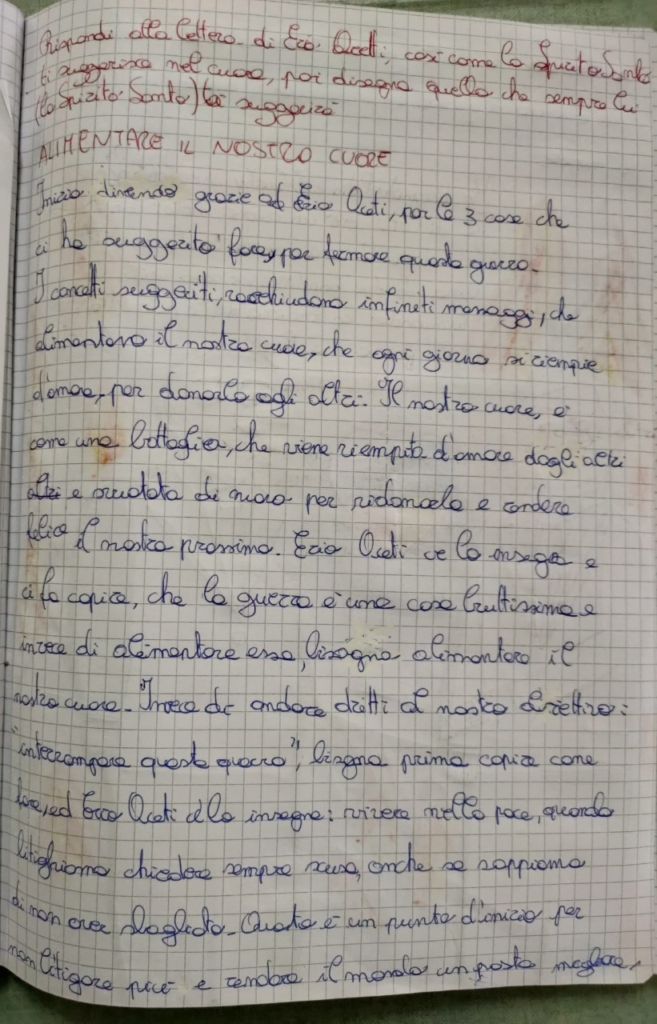 Rispondi alla lettera di Ezio Aceti, così come lo Spirito Santo
ti suggerisce nel cuore, poi disegna quello che sempre lui
(lo Spirito Santo) ti suggerirà
ALIMENTARE IL NOSTRO CUORE
Inizio dicendo grazie ad Ezio Aceti, per le 3 cose che
ci ha suggerito fare, per fermare questa guerra.
I concetti suggeriti, racchiudono infiniti messaggi, che
alimentano il nostro cuore, che ogni giorno si riempie
d'amore, per donarlo agli altri. Il nostro cuore, è
come una bottiglia, che viene riempita d'amore dagli altri
altri e svuotata di nuovo per ridarcela e rendere
felice il nostro prossimo. Ezio Aceti ce lo insegna e
ci fa capire, che la guerra è una cosa bruttissima e
invece di alimentare essa, bisogna alimentare il
nostro cuore. Invece di andare dritti al nostro obiettivo:
"interrompere questa guerra", bisogna prima capire come
fare, ed Ezio Aceti ce lo insegna: vivere nella pace, quando
litighiamo chiedere sempre scusa, anche se sappiamo
di non aver sbagliato. Questo è un punto d'inizio per
non litigare più e rendere il mondo un posto migliore,